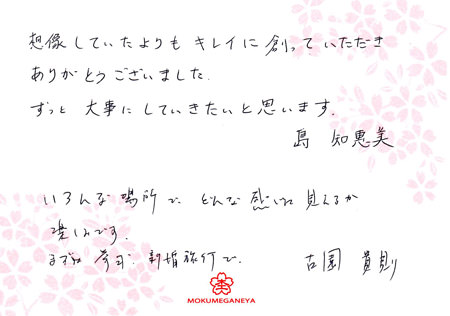 想像していたよりも キレイに 創っていただき
ありがとうございました.
ずっと 大事に していきたいと思います.
島 知恵美
いろんな場所で どんな感じに見えるか
楽しみです.
まずは 挙式. 新婚旅行で.
古園 貴則
MOKUMEGANEYA